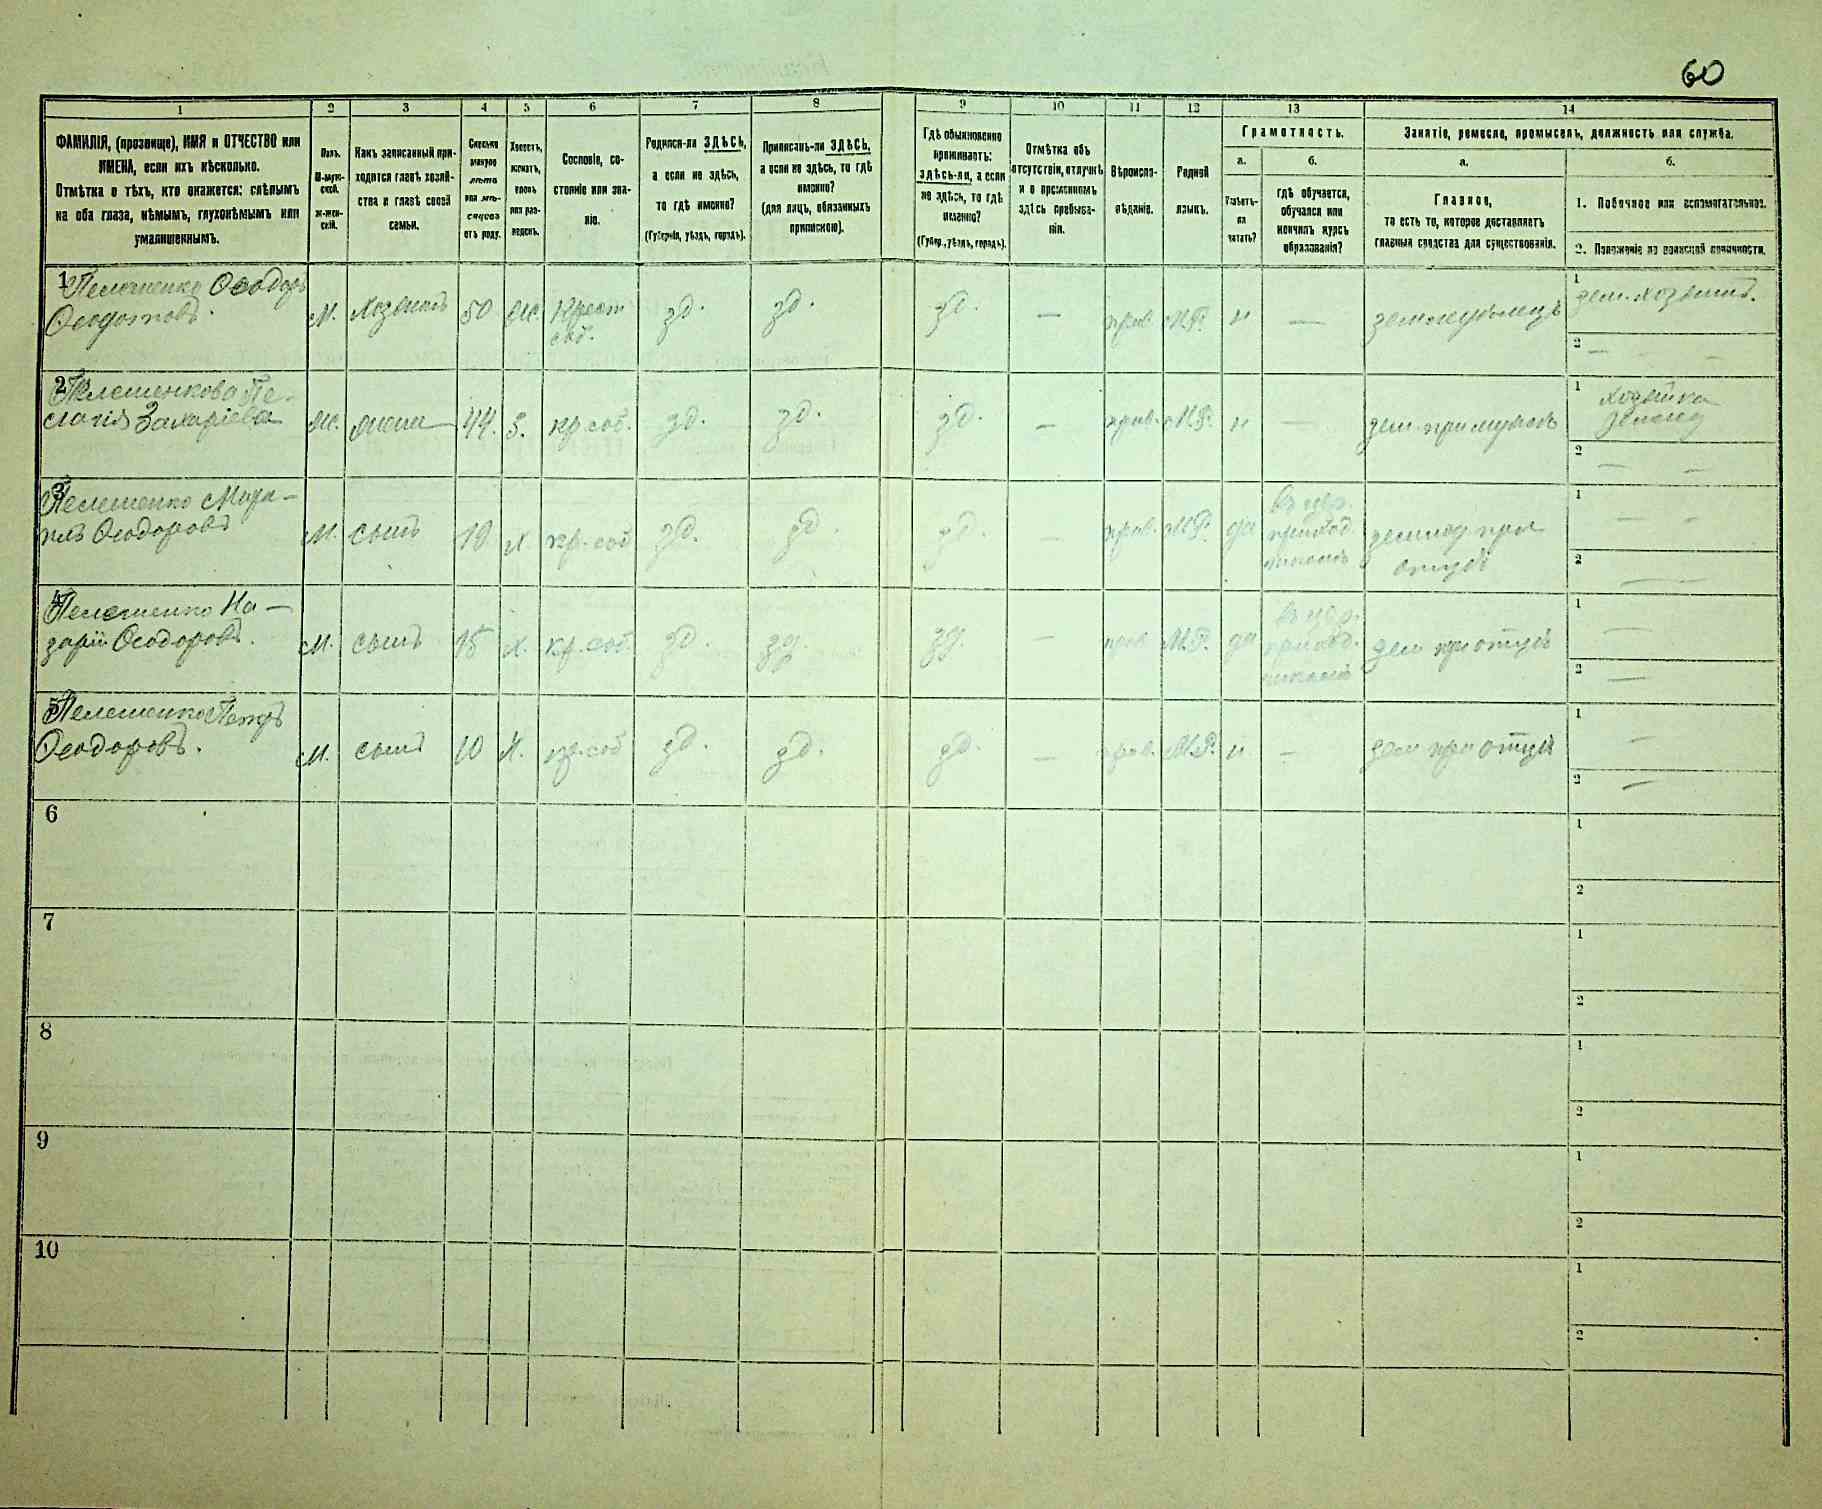 60
1
2
3
4
5
6
7
8
9
10
11
12
13
14
ФАМИЛІЯ, (прозвище), ИМЯ и ОТЧЕСТВО или
ИМЕНА, если ихъ нѣсколько.
Отмѣтка о тѣхъ, кто окажется: слѣпымъ
на оба глаза, нѣмымъ, глухонѣмымъ или
умалишеннымъ.
Полъ.
М-муж-
ской.
Ж-жен-
скій.
Какъ записанный при-
ходится главѣ хозяй-
ства и главѣ своей
семьи.
Сколько
минуло
лѣтъ
или мѣ-
сяцевъ
отъ роду.
Холостъ,
женатъ,
вдовъ
или раз-
веденъ.
Сословіе, со-
стояніе или зва-
ніе.
Родился-ли ЗДѢСЬ,
а если не здѣсь,
то гдѣ именно?
(Губернія, уѣздъ, городъ).
Приписанъ-ли ЗДѢСЬ,
а если не здѣсь, то гдѣ
именно?
(для лицъ, обязанныхъ
припискою).
Гдѣ обыкновенно
проживаетъ:
здѣсь-ли, а если
не здѣсь, то гдѣ
именно?
(Губер., уѣздъ, городъ).
Отмѣтка объ
отсутствіи, отлучкѣ
и о временномъ
здѣсь пребыва-
ніи.
Вѣроиспо-
вѣданіе.
Родной
языкъ.
Грамотность.
а.
б.
Умѣетъ-
ли
читать?
гдѣ обучается,
обучался или
кончилъ курсъ
образованія?
Занятіе, ремесло, промыселъ, должность или служба.
а.
б.
Главное,
то есть то, которое доставляетъ
главныя средства для существованія.
1. Побочное или вспомогательное.
2. Положеніе по воинской повинности.
1
Пелешенко Ѳеодоръ
Ѳедотовъ.
М.
хозяинъ
50
Ж.
Крест
соб.
зд.
зд.
зд.
—
прав.
М.Р.
н
—
земледѣлецъ
1
зем. хозяинъ.
2
— — —
2
Пелешенкова Пе-
лагія Захаріева
Ж.
жена
44.
З.
кр соб.
зд.
зд.
зд.
—
прав.
М.Р.
н
—
зем. при мужѣ
1
хозяйка
2
— —
3
Пелешенко
Ѳеодоровъ
М.
сынъ
19
Х
кр. соб
зд.
зд.
зд.
—
прав.
М.Р.
да
въ цер.
приход.
школѣ
при
отцѣ
1
— —
2
—
4
Пелешенко На-
зарій Ѳеодоровъ.
М.
сынъ
15
Х.
кр. соб.
зд.
зд.
зд.
—
прав
М.Р.
да
въ цер.
приход.
школѣ
зем при отцѣ
1
—
2
—
5
Пелешенко Петръ
Ѳеодоровъ.
М.
сынъ
10
Х.
кр. соб
зд.
зд.
зд.
—
прав.
М.Р.
н
—
зем при отцѣ
1
—
2
—
6
1
2
7
1
2
8
1
2
9
1
2
10
1
2